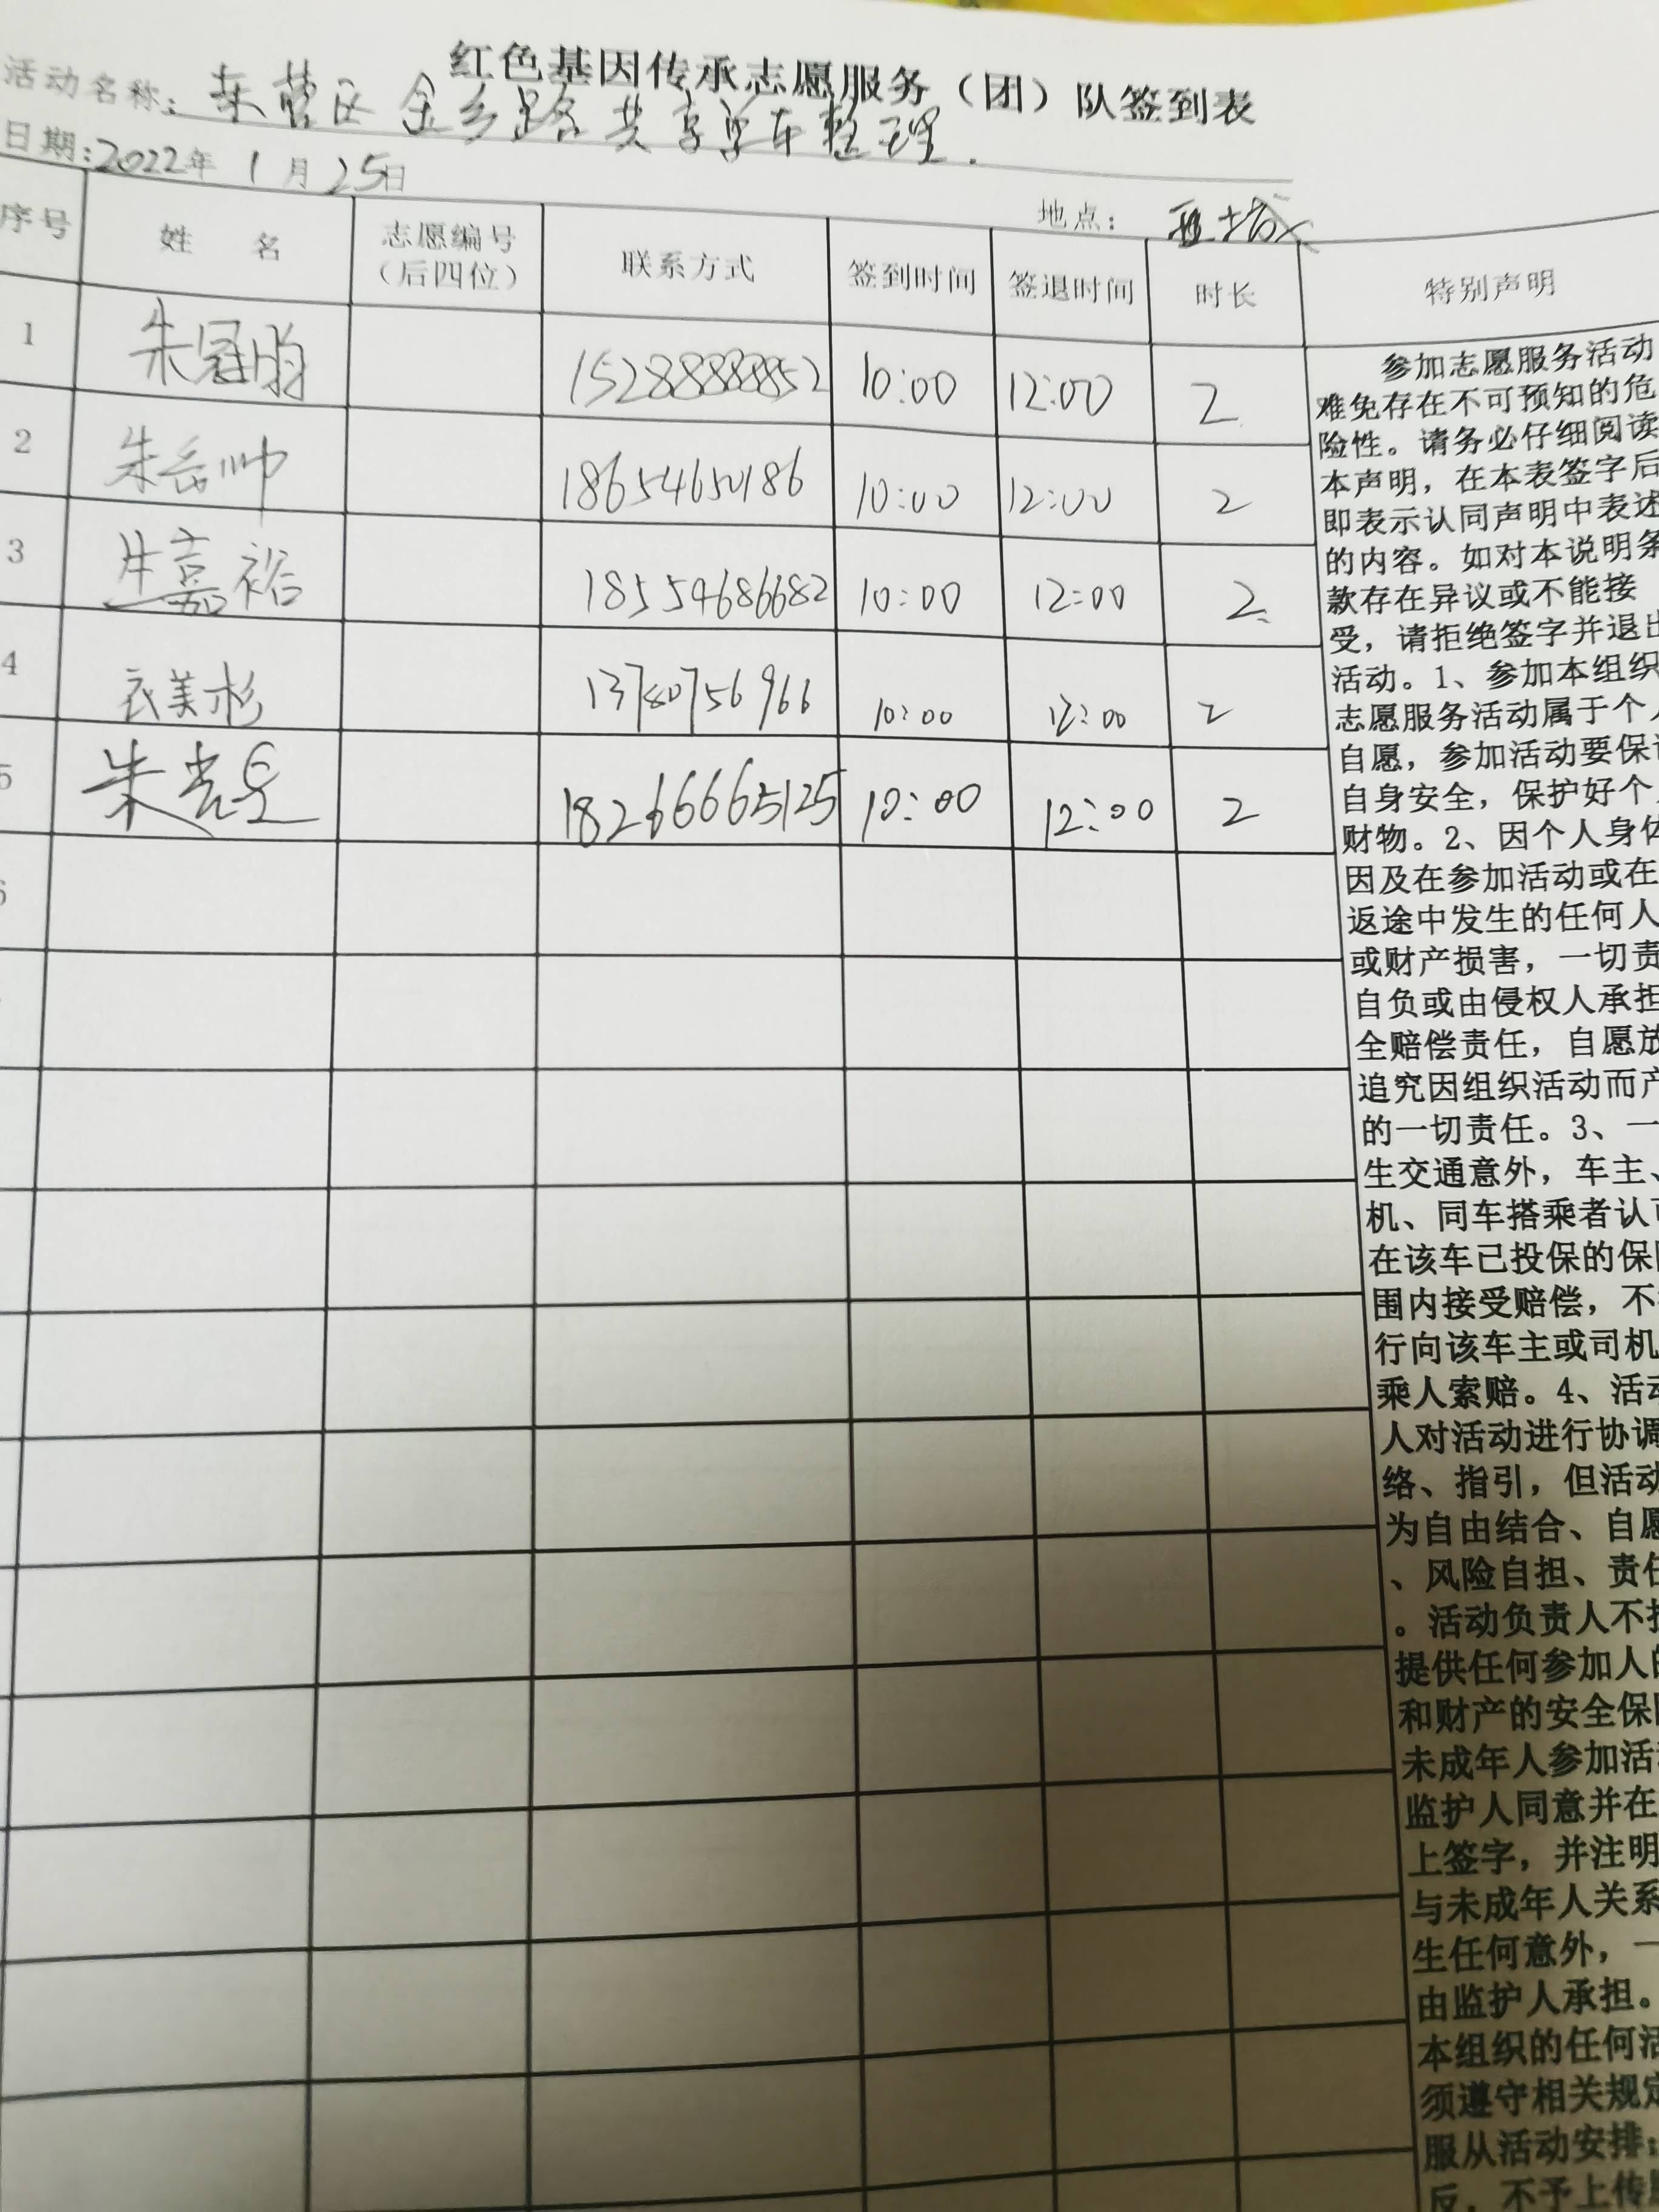 红色基因传承志愿服务（团）队签到表
活动名称：东营区金乡路共享单车整理.
日期:2022年 1月25日
地点：
序号 姓 名 志愿编号（后四位） 联系方式 签到时间 签退时间 时长 特别声明
1 朱冠 10:00 12:00 2
2 朱岳帅 18654650186 10:00 12:00 2
3 嘉裕 18554686682 10:00 12:00 2
4 衣美杉 13780756966 10:00 12:00 2
5 朱 18266665125 10:00 12:00 2
参加志愿服务活动
难免存在不可预知的危
险性。请务必仔细阅读
本声明，在本表签字后
即表示认同声明中表述
的内容。如对本说明条
款存在异议或不能接
受，请拒绝签字并退出
活动。1、参加本组织
志愿服务活动属于个
自愿，参加活动要保
自身安全，保护好个
财物。2、因个人身体
因及在参加活动或在
返途中发生的任何人
或财产损害，一切责
自负或由侵权人承担
全赔偿责任，自愿放
追究因组织活动而产
的一切责任。3、一
生交通意外，车主、
机、同车搭乘者认可
在该车已投保的保
围内接受赔偿，不
行向该车主或司机
乘人索赔。4、活动
人对活动进行协调
络、指引，但活动
为自由结合、自愿
、风险自担、责任
。活动负责人不
提供任何参加人的
和财产的安全保
未成年人参加活
监护人同意并在
上签字，并注明
与未成年人关系
生任何意外，一
由监护人承担。
本组织的任何活
须遵守相关规定
服从活动安排；
反，不予上传